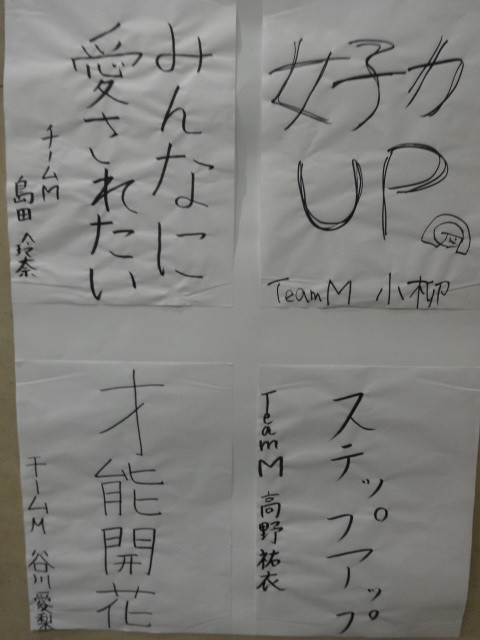 女子力
UP
TeamM 小柳
みんなに
愛されたい
チームM 島田玲奈
ステップアップ
TeamM 高野祐衣
才能開花
チームM 谷川愛梨